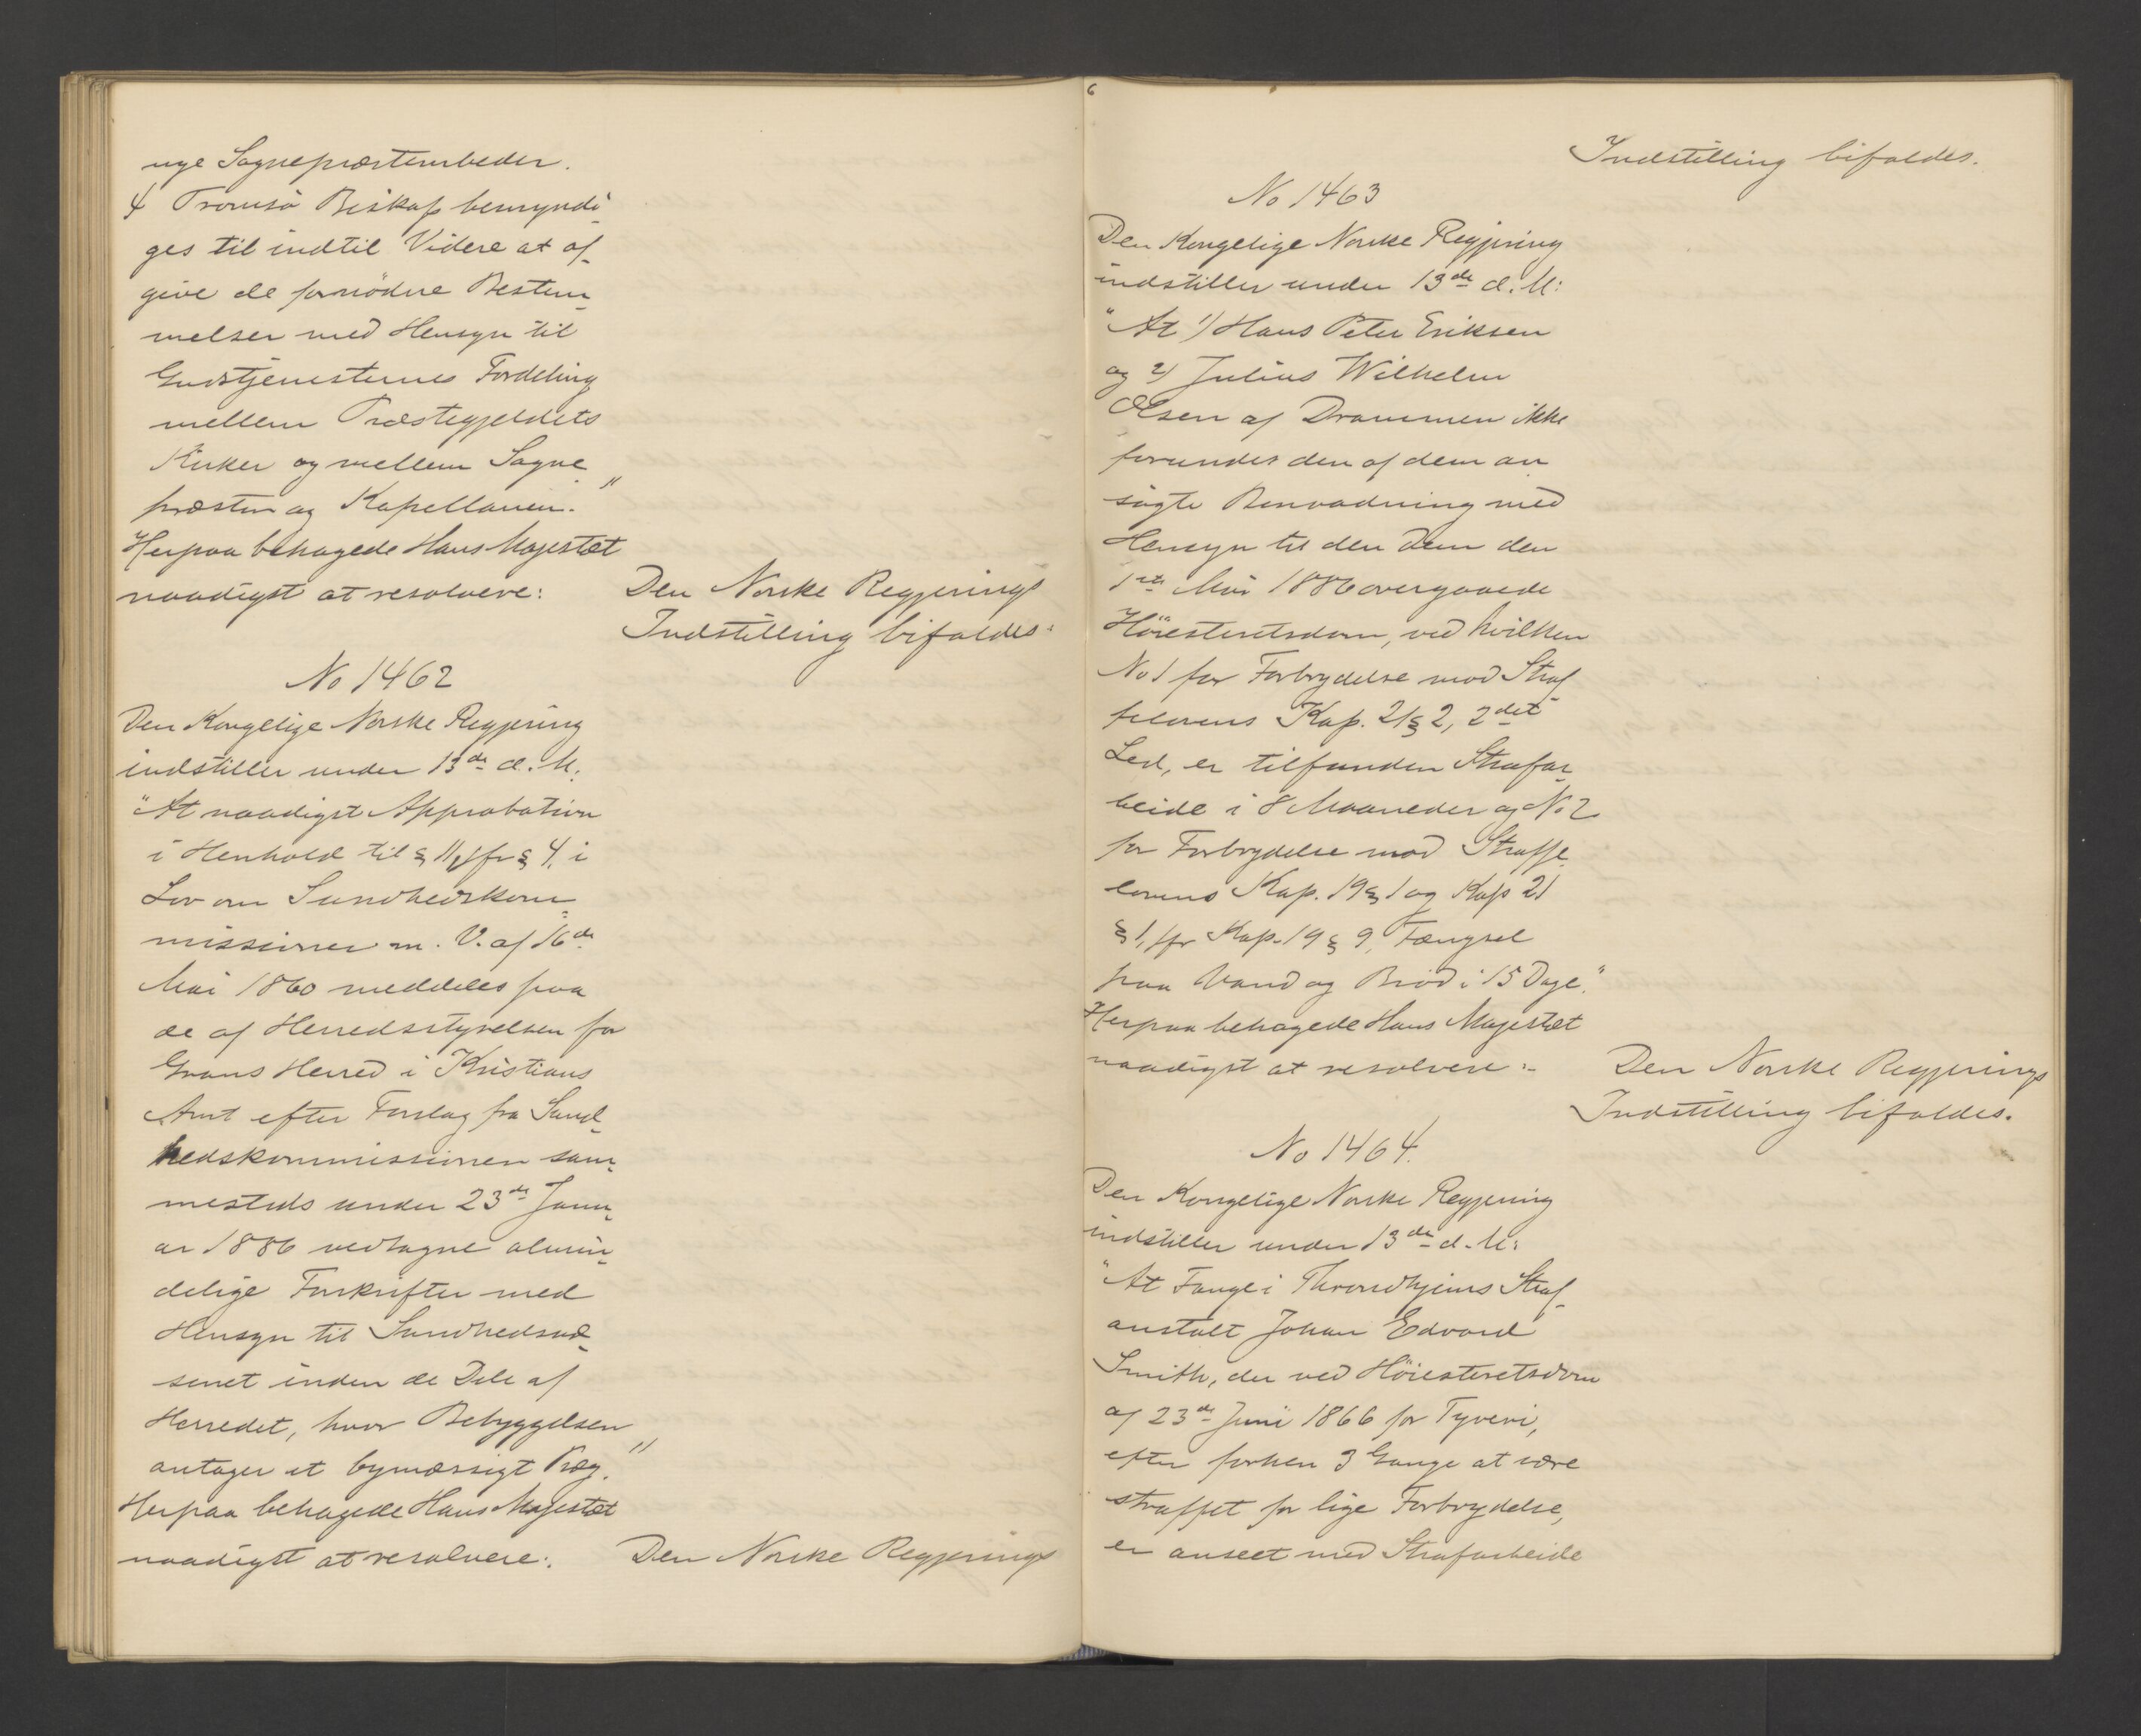 nye Sognepræstembeder.
4 Tromsö Biskop bemyndi-
ges til indtil Videre at af-
give de fornödne Bestem-
melser med Hensyn til
Gudstjenesternes Fordeling
mellem Præstegjeldets
Kirker og mellem Sogne-
præsten og Kapellanen."
Herpaa behagede Hans Majestæt
naadigst at resolvere:
Den Norske Regjerings
Indstilling bifaldes.
No 1462
Den Kongelige Norske Regjering
indstiller under 13de d. M:
"At naadigst Approbation
i Henhold til § 11, jfr § 4, i
Lov om Sundhedskom-
missioner m. V. af 16de
Mai 1860 meddeles paa
de af Herredsstyrelsen for
Grans Herred i Kristians
Amt efter Forslag fra Sund-
hedskommissionen sam-
mesteds under 23de Janu-
ar 1886 vedtagne almin-
delige Forskrifter med
Hensyn til Sundhedsvæ-
senet inden de Dele af
Herredet, hvor Bebyggelsen
antager et bymæssigt Præg."
Herpaa behagede Hans Majestæt
naadigst at resolvere:
Den Norske Regjerings
6
Indstilling bifaldes.
No 1463
Den Kongelige Norske Regjering
indstiller under 13de d. M:
"At 1) Hans Peter Eriksen
og 2) Julius Wilhelm
Olsen af Drammen ikke
forundes den af dem an-
søgte Benaadning med
Hensyn til den dem den
1ste Mai 1886 overgaaede
Höiesteretsdom, ved hvilken
No 1 for Forbrydelse mod Straf-
felovens Kap. 21 § 2, 2det
Led, er tilfunden Strafar-
beide i 8 Maaneder og No 2
for Forbrydelse mod Straffe-
lovens Kap. 19 § 1 og Kap 21
§ 1, jfr Kap. 19 § 9, Fængsel
paa Vand og Bröd i 15 Dage."
Herpaa behagede Hans Majestæt
naadigst at resolvere:
Den Norske Regjerings
Indstilling bifaldes.
No 1464.
Den Kongelige Norske Regjering
indstiller under 13de d. M:
"At Fange i Throndhjems Straf-
anstalt Johan Edvard
Smith, der ved Höiesteretsdom
af 23de Juni 1866 for Tyveri,
efter forhen 3 Gange at være
straffet for lige Forbrydelse,
er anseet med Strafarbeide